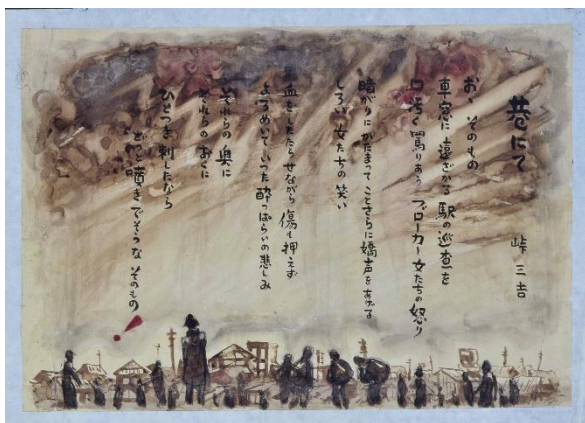 巷にて
峠三吉
おゝそのもの
車窓に遠ざかる駅の巡査を
口々に罵りあうブローカー女たちの怒り
暗がりにかたまってことさらに嬌声をあげる
しろい女たちの笑い
血をしたたらせながら傷も押えず
よろめいていった酔っぱらいの悲しみ
それらの奥に
それらのおくに
ひとつき刺したなら
どっと噴きでそうなそのもの!